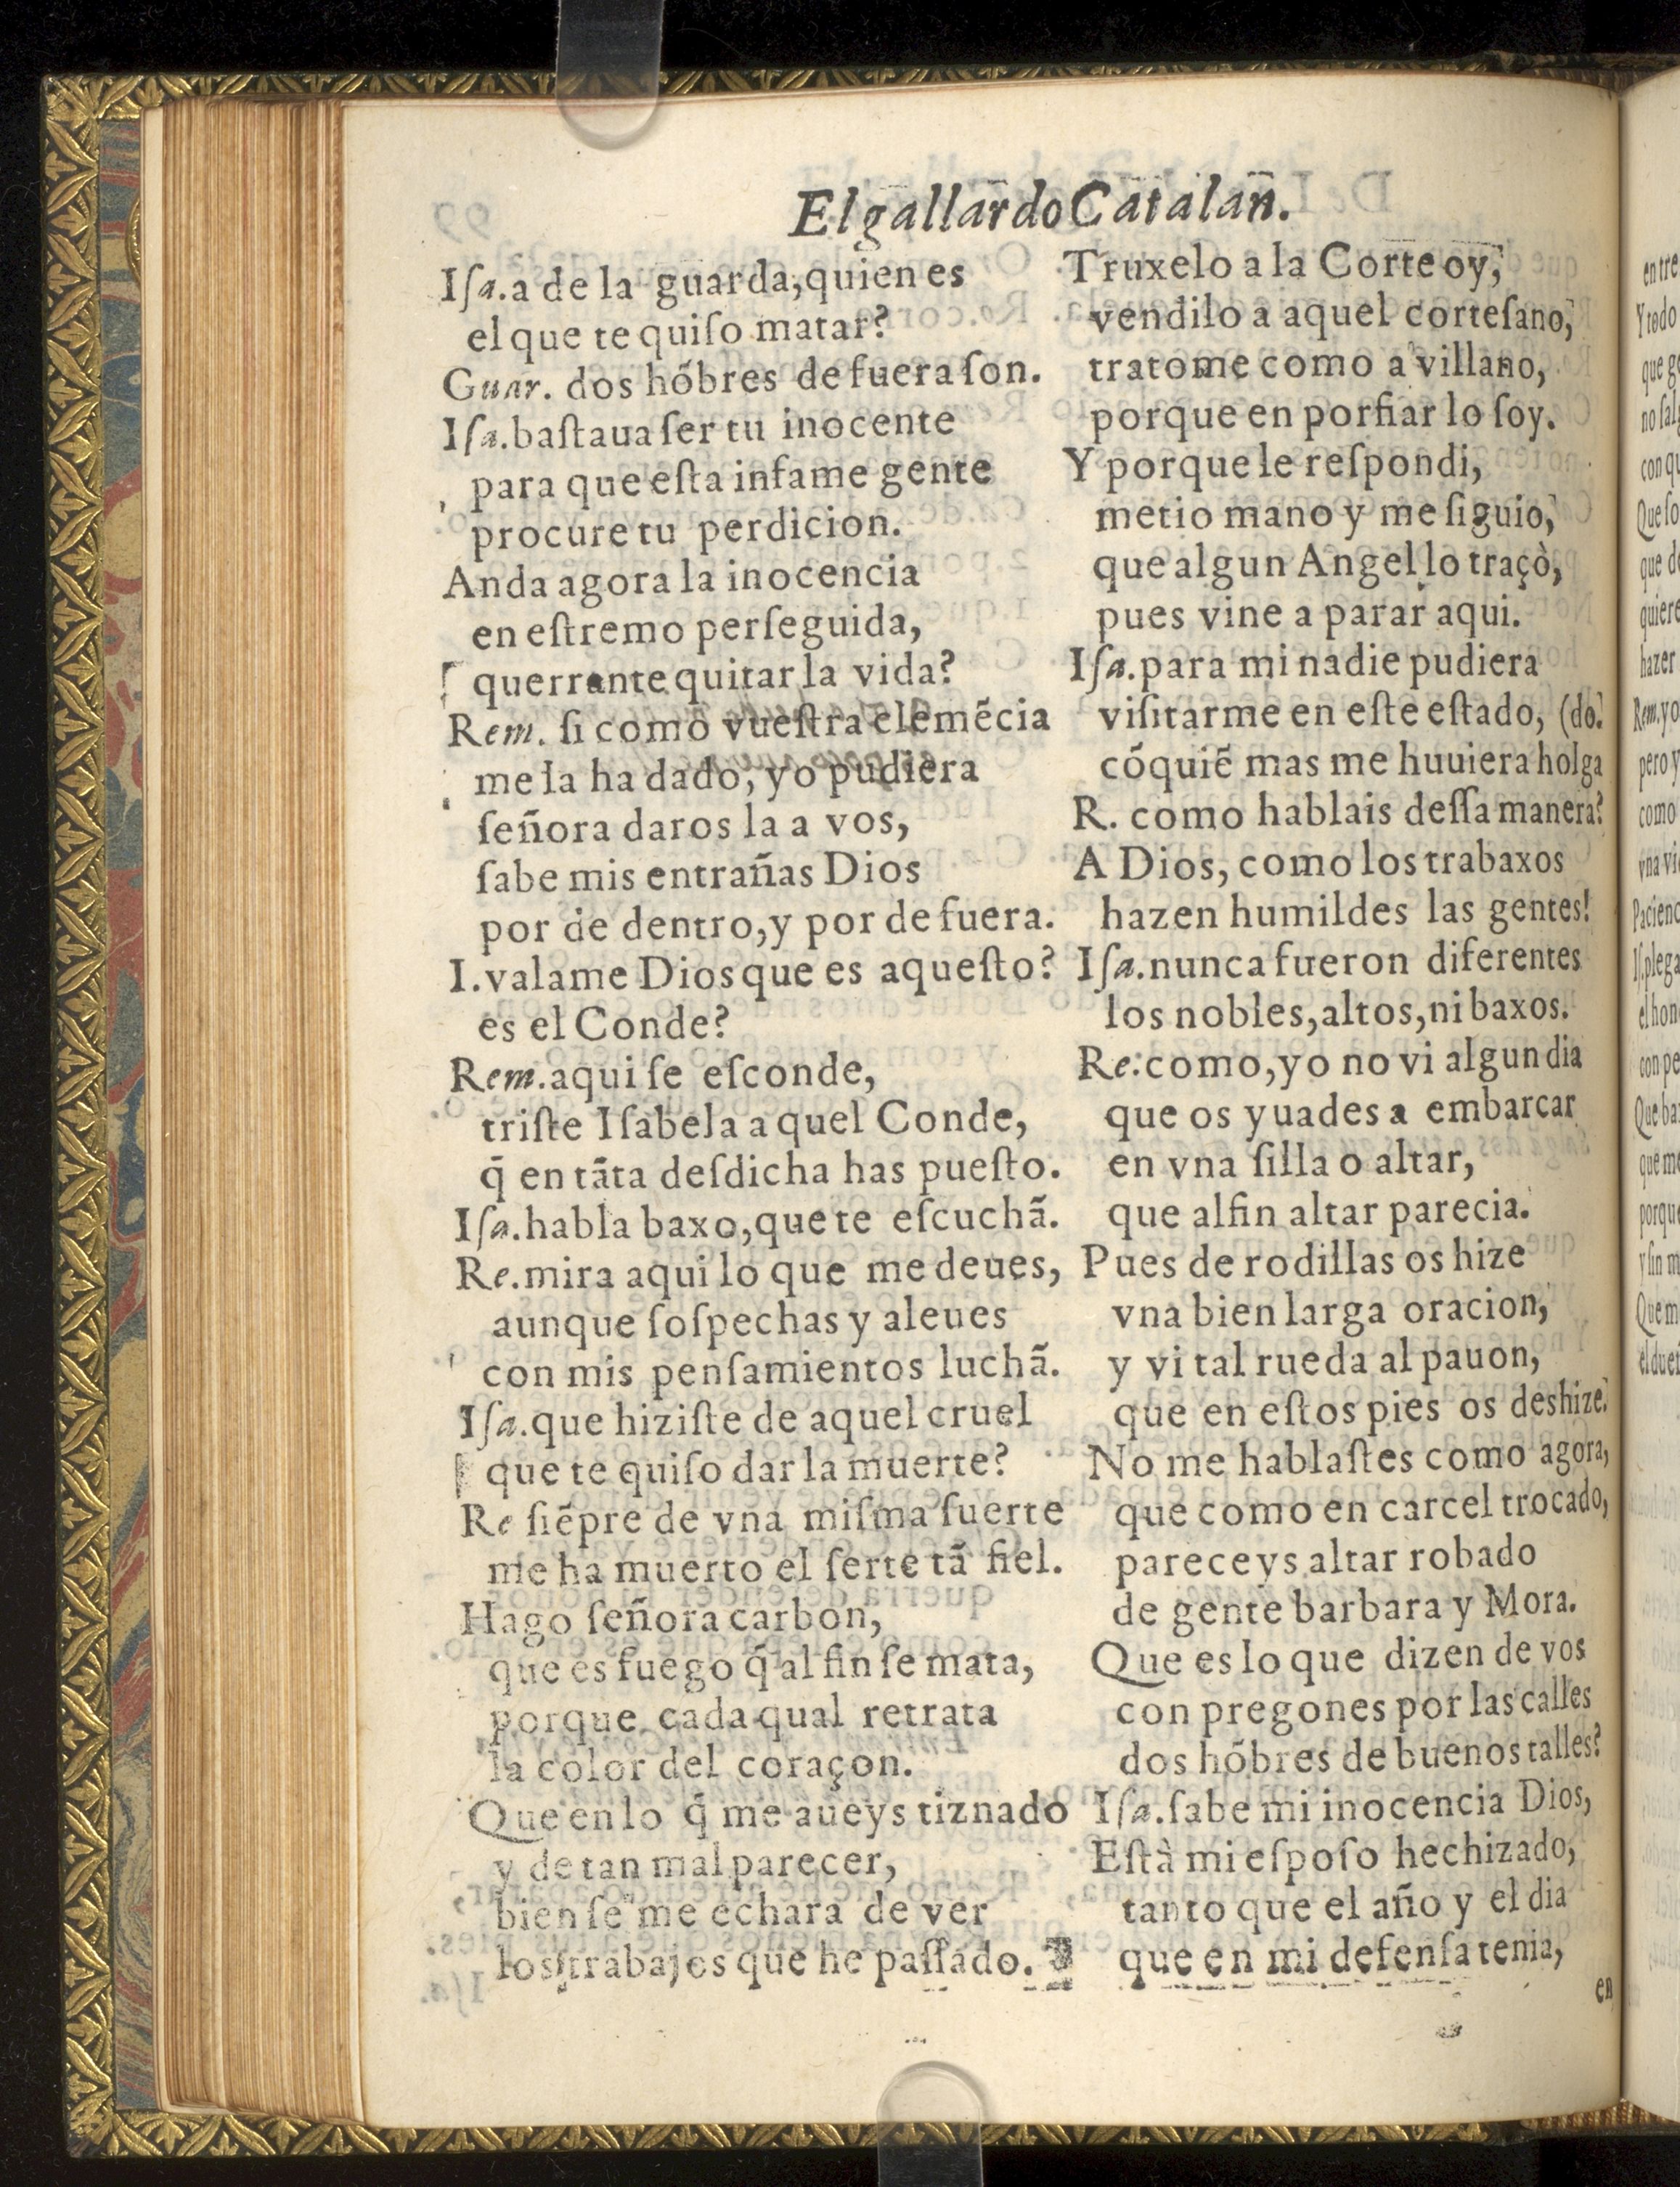 El gallardo Catalan.
Iſa.a de la guarda,quien es
el que te quiſo matar?
Guar. dos hõbres de fuera ſon.
Iſa.baſtaua ſer tu inocente
para que eſta infame gente
procure tu perdicion.
Anda agora la inocencia
en eſtremo perſeguida,
querrante quitar la vida?
Rem. ſi como vueſtra clemẽcia
me la ha dado, yo pudiera
ſeñora daros la a vos,
ſabe mis entrañas Dios
por de dentro,y por de fuera.
I.valame Dios que es aqueſto?
es el Conde?
Rem.aqui ſe eſconde,
triſte Iſabela aquel Conde,
q̃ en tãta deſdicha has pueſto.
Iſa.habla baxo,que te eſcuchã.
Re.mira aqui lo que me deues,
aunque ſoſpechas y aleues
con mis penſamientos luchã.
Iſa.que hiziſte de aquel cruel
que te quiſo dar la muerte?
Re ſiẽpre de vna miſma ſuerte
me ha muerto el ſerte tã fiel.
Hago ſeñora carbon,
que es fuego q̃ al fin ſe mata,
porque cada qual retrata
la color del coraçon.
Que en lo q̃ me aueys tiznado
y de tan mal parecer,
bien ſe me echara de ver
los trabajos que he paſſado.
Truxelo a la Corte oy,
vendilo a aquel corteſano,
tratome como a villano,
porque en porfiar lo ſoy.
Y porque le reſpondi,
metio mano y me ſiguio,
que algun Angel lo traçò,
pues vine a parar aqui.
Iſa.para mi nadie pudiera
viſitarme en eſte eſtado, (do.
cõquiẽ mas me huuiera holga
R. como hablais deſſa manera?
A Dios, como los trabaxos
hazen humildes las gentes!
Iſa.nunca fueron diferentes
los nobles,altos,ni baxos.
Re.como,yo no vi algun dia
que os yuades a embarcar
en vna ſilla o altar,
que alfin altar parecia.
Pues de rodillas os hize
vna bien larga oracion,
y vi tal rueda al pauon,
que en eſtos pies os deshize.
No me hablaſtes como agora,
que como en carcel trocado,
pareceys altar robado
de gente barbara y Mora.
Que es lo que dizen de vos
con pregones por las calles
dos hõbres de buenos talles?
Iſa.ſabe mi inocencia Dios,
Eſtà mi eſpoſo hechizado,
tanto que el año y el dia
que en mi defenſa tenia,
en